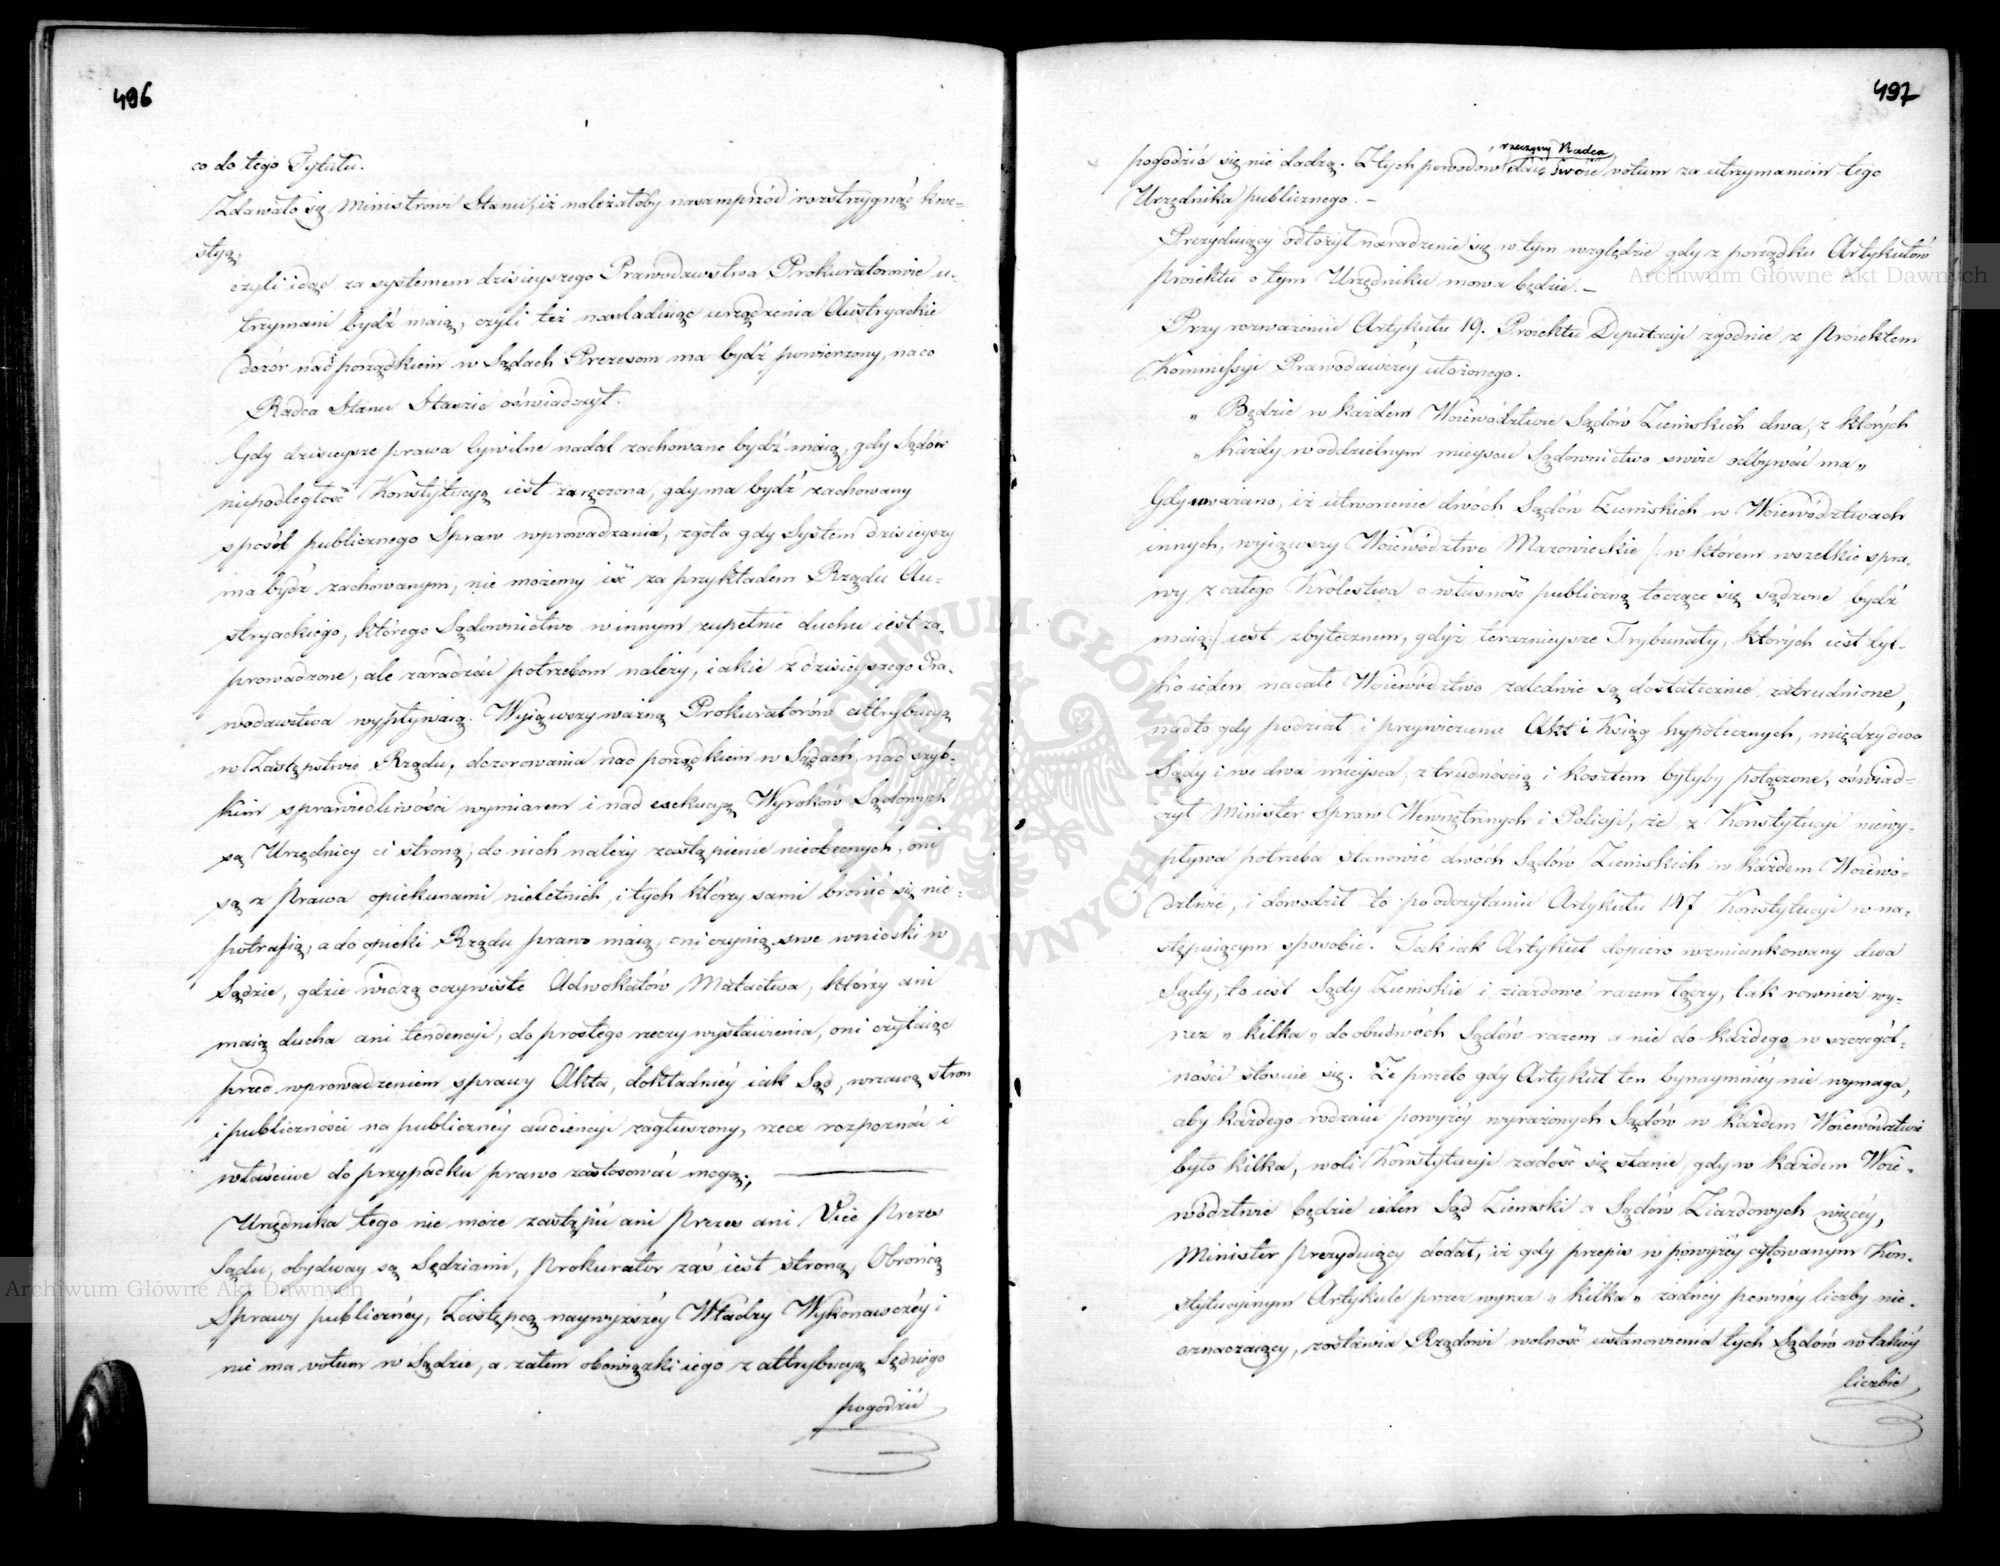 496
co do tego Tytułu.
Zdawało się Ministrowi Stanu, iż należałoby nasamprzód rozstrzygnąć kwe-
styą,
czyli idąc za systemem dzisieyszego Prawodawstwa Prokuratorowie u-
trzymani bydź maią, czyli też nasladuiąc urządzenia Austryackie
dozór nad porządkiem w Sądach Prezesom ma bydź powierzony, na co
Radca Stanu Staszic oświadczył.
Gdy dzisieysze prawa Cywilne nadal zachowane bydź maią, gdy Sądów
niepodległość Konstytucyą iest zaręczona, gdy ma bydź zachowany
sposób publicznego Spraw wprowadzania, zgoła gdy System dzisieyszy
ma bydź zachowanym, nie możemy iść za przykładem Rządu Au-
stryackiego, którego Sądownictwo w innym zupełnie duchu iest za-
prowadzone, ale zaradzać potrzebom należy, iakie z dzisieyszego Pra-
wodawstwa wypływaią. Wyiąwszy ważną Prokuratorów attrybucyą
w Zastępstwie Rządu, dozorowania nad porządkiem w Sądach, nad szyb-
kim sprawiedliwości wymiarem i nad exekucyą Wyroków Sądowych
są Urzędnicy ci stroną, do nich należy zastąpienie nieobecnych, oni
są z Prawa opiekunami nieletnich, i tych którzy sami bronić się nie-
potrafią, a do opieki Rządu prawo maią, oni czynią swe wnioski w
Sądzie, gdzie widzą oczywiste Adwokatów Matactwa, którzy ani
maią ducha ani tendencyi, do prostego rzeczy wystawienia, oni czytaiąc
przed wprowadzeniem sprawy Akta, dokładniéy iak Sąd, wrzawą stron
i publiczności na publicznéy audiencyi zagłuszony, rzecz rozpoznać i
właściwe do przypadku prawo zastosować mogą;
Urzędnika tego nie może zastąpić ani Prezes ani Vice Prezes
Sądu, obydway są Sędziami, Prokurator zaś iest stroną, Obrońcą
Sprawy publicznéy, Zastępcą naywyższéy Władzy Wykonawczéy i
nie ma votum w Sądzie, a zatem obowiązki iego z attrybucyą Sędziego
pogodzić
497
pogodzić się nie dadzą. Z tych powodów rzeczony Radca daie swoie votum za utrzymaniem tego
Urzędnika publicznego. –
Prezyduiący odłożył naradzenie się w tym względzie gdy z porządku Artykułów
Proiektu o tym Urzędniku mowa będzie. –
Przy rozważeniu Artykułu 19. Proiektu Deputacyi zgodnie z Proiektem
Kommissyi Prawodawczéy ułożonego.
„ Będzie w każdem Woiewództwie Sądów Ziemskich dwa, z których
„ Każdy w oddzielnym mieyscu Sądownictwo swoie odbywać ma „
Gdy uważano, iż utworzenie dwóch Sądów Ziemskich w Woiewództwach
innych, wyiąwszy Woiewództwo Mazowieckie /: w którem wszelkie spra-
wy z całego Królestwa o własność publiczną toczące się sądzone bydź
maią :/ iest zbytecznem, gdyż teraznieysze Trybunały, których iest tyl-
ko ieden na całe Woiewództwo zaledwie są dostatecznie zatrudnione,
nadto gdy podział i przywiezienie Akt i Ksiąg hypotecznych, między dwa
Sądy i we dwa mieysca, z trudnością i kosztem byłyby połączone, oświad-
czył Minister Spraw Wewnętrznych i Policyi, że z Konstytucyi niewy-
pływa potrzeba stanowić dwóch Sądów Ziemskich w każdem Woiewó-
dztwie, i dowodził to po odczytaniu Artykułu 147 Konstytucyi w na-
stępuiącym sposobie. Jak iak Artykuł dopiero wzmiankowany dwa
Sądy, to iest Sądy Ziemskie i ziazdowe razem łączy, tak rownież wy-
raz „ kilka „ do obudwóch Sądów razem a nie do każdego w szczegól-
ności stosuie się. Że przeto gdy Artykuł ten bynaymniéy nie wymaga,
aby każdego rodzaiu powyżéy wyrażonych Sądów w każdem Woiewództwie
było kilka, woli Konstytucyi zadość się stanie, gdy w każdem Woie-
wództwie będzie ieden Sąd Ziemski a Sądów Ziazdowych więcéy,
Minister Prezyduiący dodał, iż gdy przepis w powyżéy cytowanym Kon-
stytucyinym Artykule przez wyraz „ kilka „ żadnéy pewnéy liczby nie-
oznaczaiący, zostawia Rządowi wolność ustanowienia tych Sądów w takiéy
liczbie
Archiwum Główne Akt Dawnych
Archiwum Główne Akt Dawnych
ARCHIWUM GŁÓWNE AKT DAWNYCH